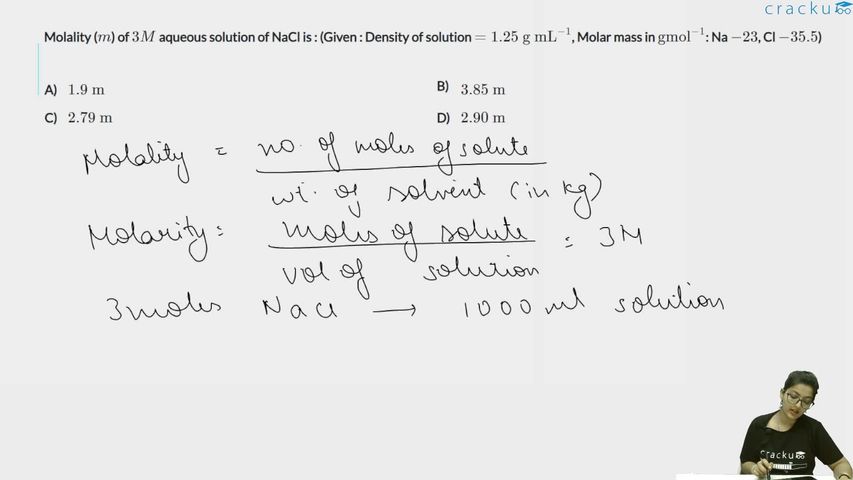 cracku
Molality (m) of 3M aqueous solution of NaCl is : (Given : Density of solution = 1.25 g mL⁻¹, Molar mass in gmol⁻¹ : Na −23, Cl −35.5)
A) 1.9 m
B) 3.85 m
C) 2.79 m
D) 2.90 m
Molality = no. of moles of solute
wt. of solvent (in kg)
Molarity = moles of solute = 3M
vol of solution
3 moles NaCl → 1000 ml solution
cracku